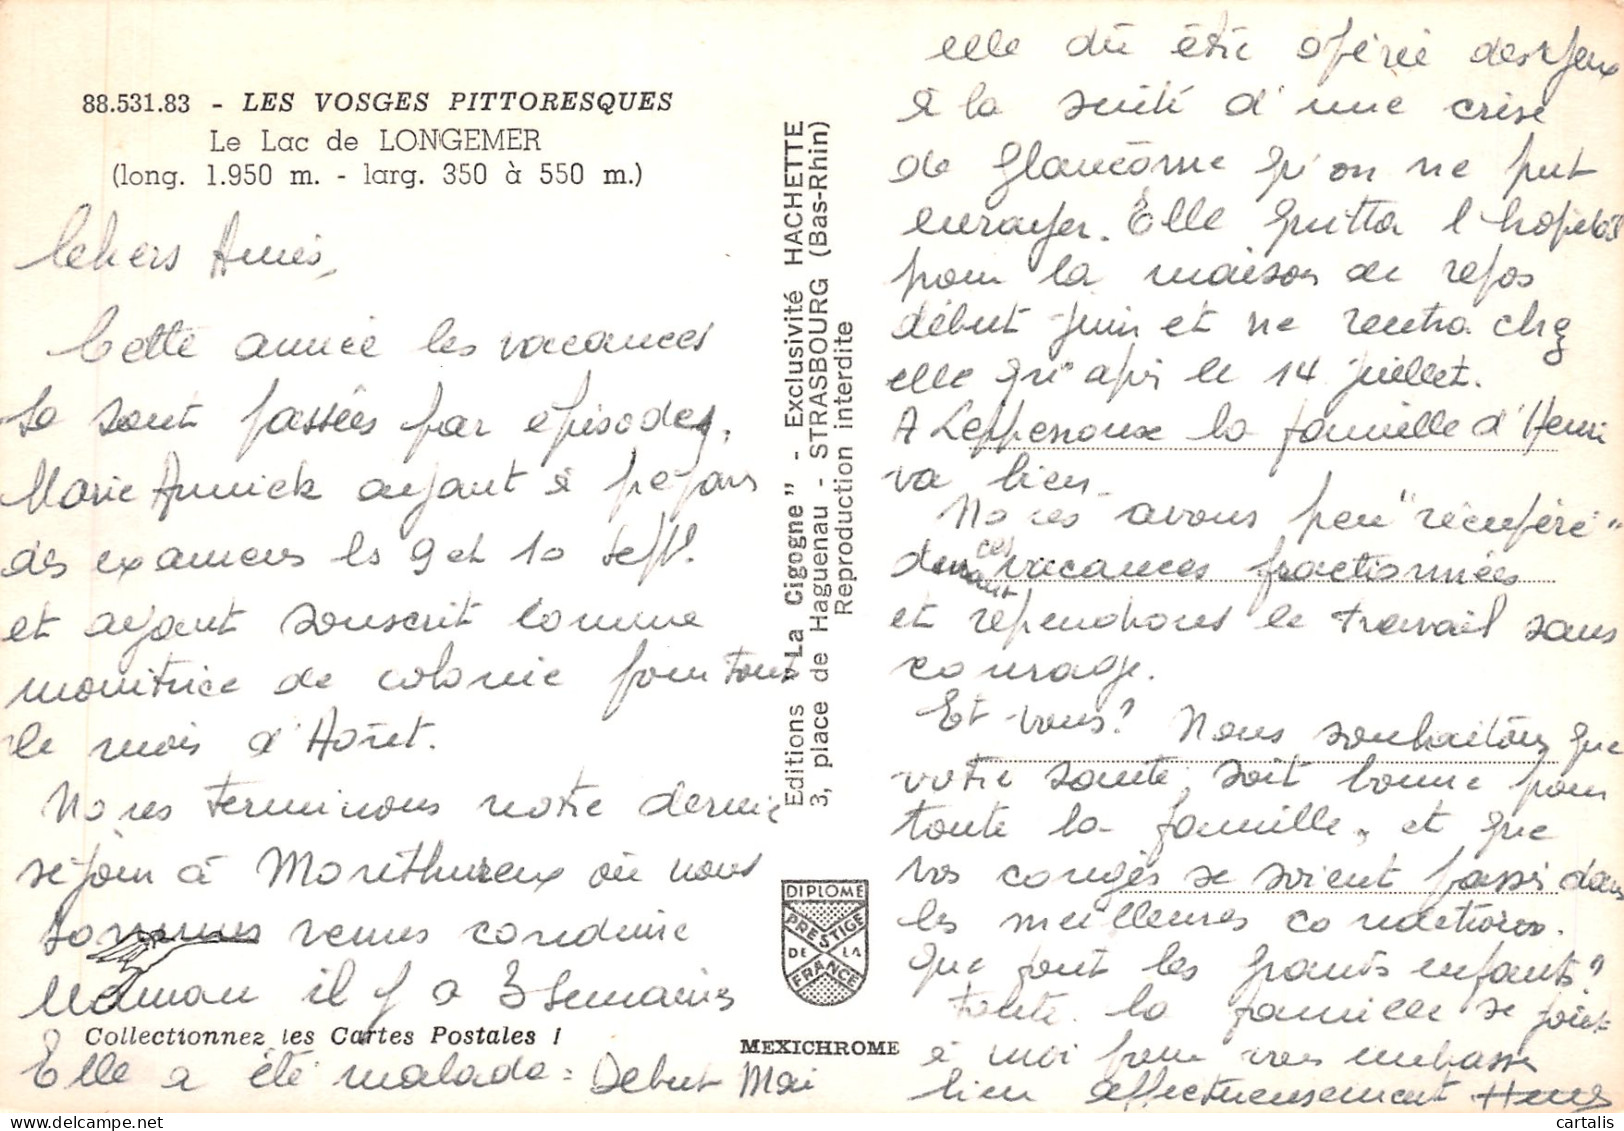 88.531.83 - LES VOSGES PITTORESQUES
Le Lac de LONGEMER
(long. 1.950 m. - larg. 350 à 550 m.)
Chers Amis,
Cette année les vacances
se sont passées par épisodes,
Marie Annick ayant à préparer
des examens les 9 et 10 sept.
et ayant souscrit comme
monitrice de colonie pour tout
le mois d'Août.
Nous terminons notre dernier
séjour à Monthureux où nous
sommes venus conduire
Maman il y a 3 semaines
Collectionnez les Cartes Postales !
Elle a été malade : Début Mai
Editions "La Cigogne" - Exclusivité HACHETTE
3, place de Haguenau - STRASBOURG (Bas-Rhin)
Reproduction interdite
DIPLOME
PRESTIGE
DE LA
FRANCE
MEXICHROME
elle dû être opérée des yeux
à la suite d'une crise
de glaucôme qu'on ne put
enrayer. Elle quitta l'hôpital
pour la maison de repos
début juin et ne rentra chez
elle qu'après le 14 juillet.
A la famille d'Henri
va bien.
Nous avons peu "récupéré"
durant ces vacances fractionnées
et reprendrons le travail sans
courage.
Et vous? Nous souhaitons que
votre santé soit bonne pour
toute la famille, et que
vos congés se soient passés dans
les meilleures conditions.
Que font les grands enfants?
Toute la famille se joint
à moi pour vous embrasser
bien affectueusement
cartalis.com